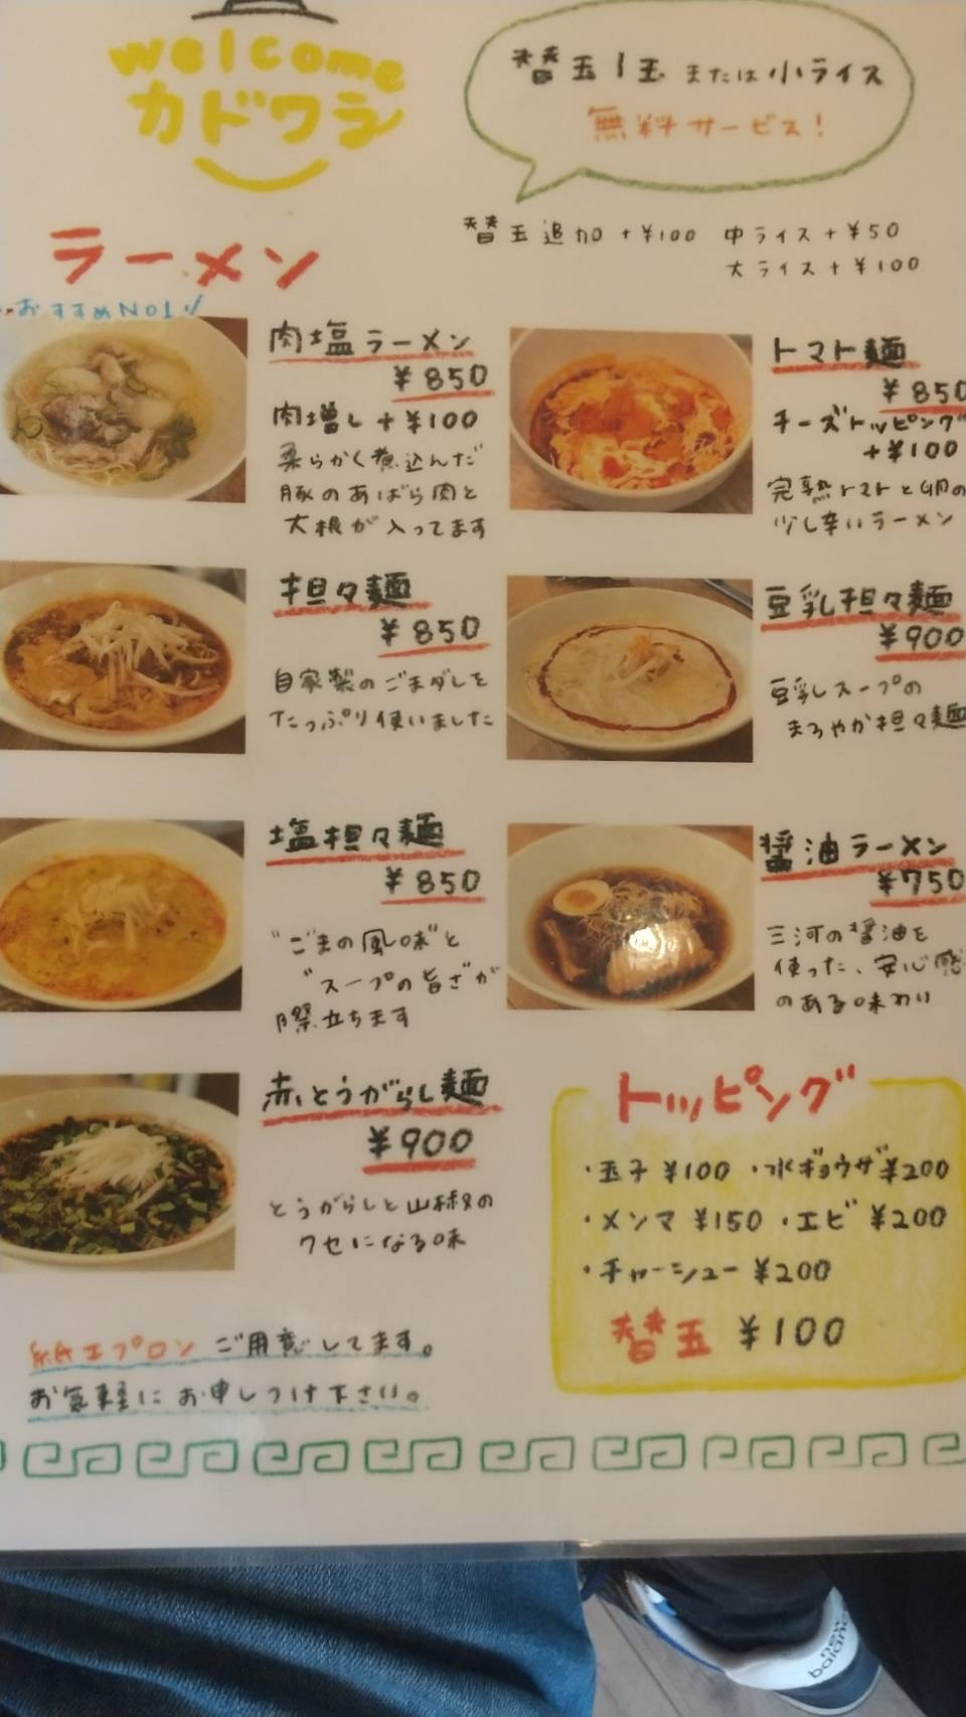 welcome
カドワラ
替玉1玉 または 小ライス
無料サービス!
替玉追加+¥100 中ライス+¥50
大ライス+¥100
ラーメン
おすすめNO1
肉塩ラーメン
¥850
肉増し+¥100
柔らかく煮込んだ
豚のあばら肉と
大根が入ってます
トマト麺
¥850
チーズトッピング
+¥100
完熟トマトと卵の
少し辛いラーメン
担々麺
¥850
自家製のごまダレを
たっぷり使いました
豆乳担々麺
¥900
豆乳スープの
まろやか担々麺
塩担々麺
¥850
"ごまの風味"と
"スープの旨さ"が
際立ちます
醤油ラーメン
¥750
三河の醤油を
使った、安心感
のある味わい
赤とうがらし麺
¥900
とうがらしと山椒の
クセになる味
トッピング
・玉子 ¥100 ・水ギョウザ ¥200
・メンマ ¥150 ・エビ ¥200
・チャーシュー ¥200
替玉 ¥100
紙エプロン ご用意してます。
お気軽に お申しつけ下さい。
new
balance